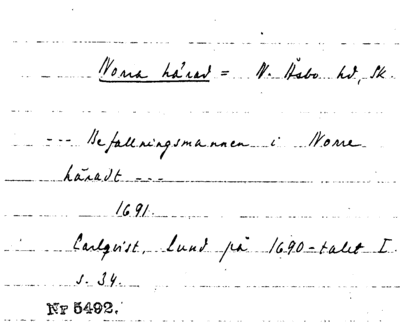 Norra härad = N. Åsbo hd, Sk.
--- Befallningsmannen i Norre
häradt ---
1691.
Carlqvist, Lund på 1690-talet I
s. 34.
Nr 5492.